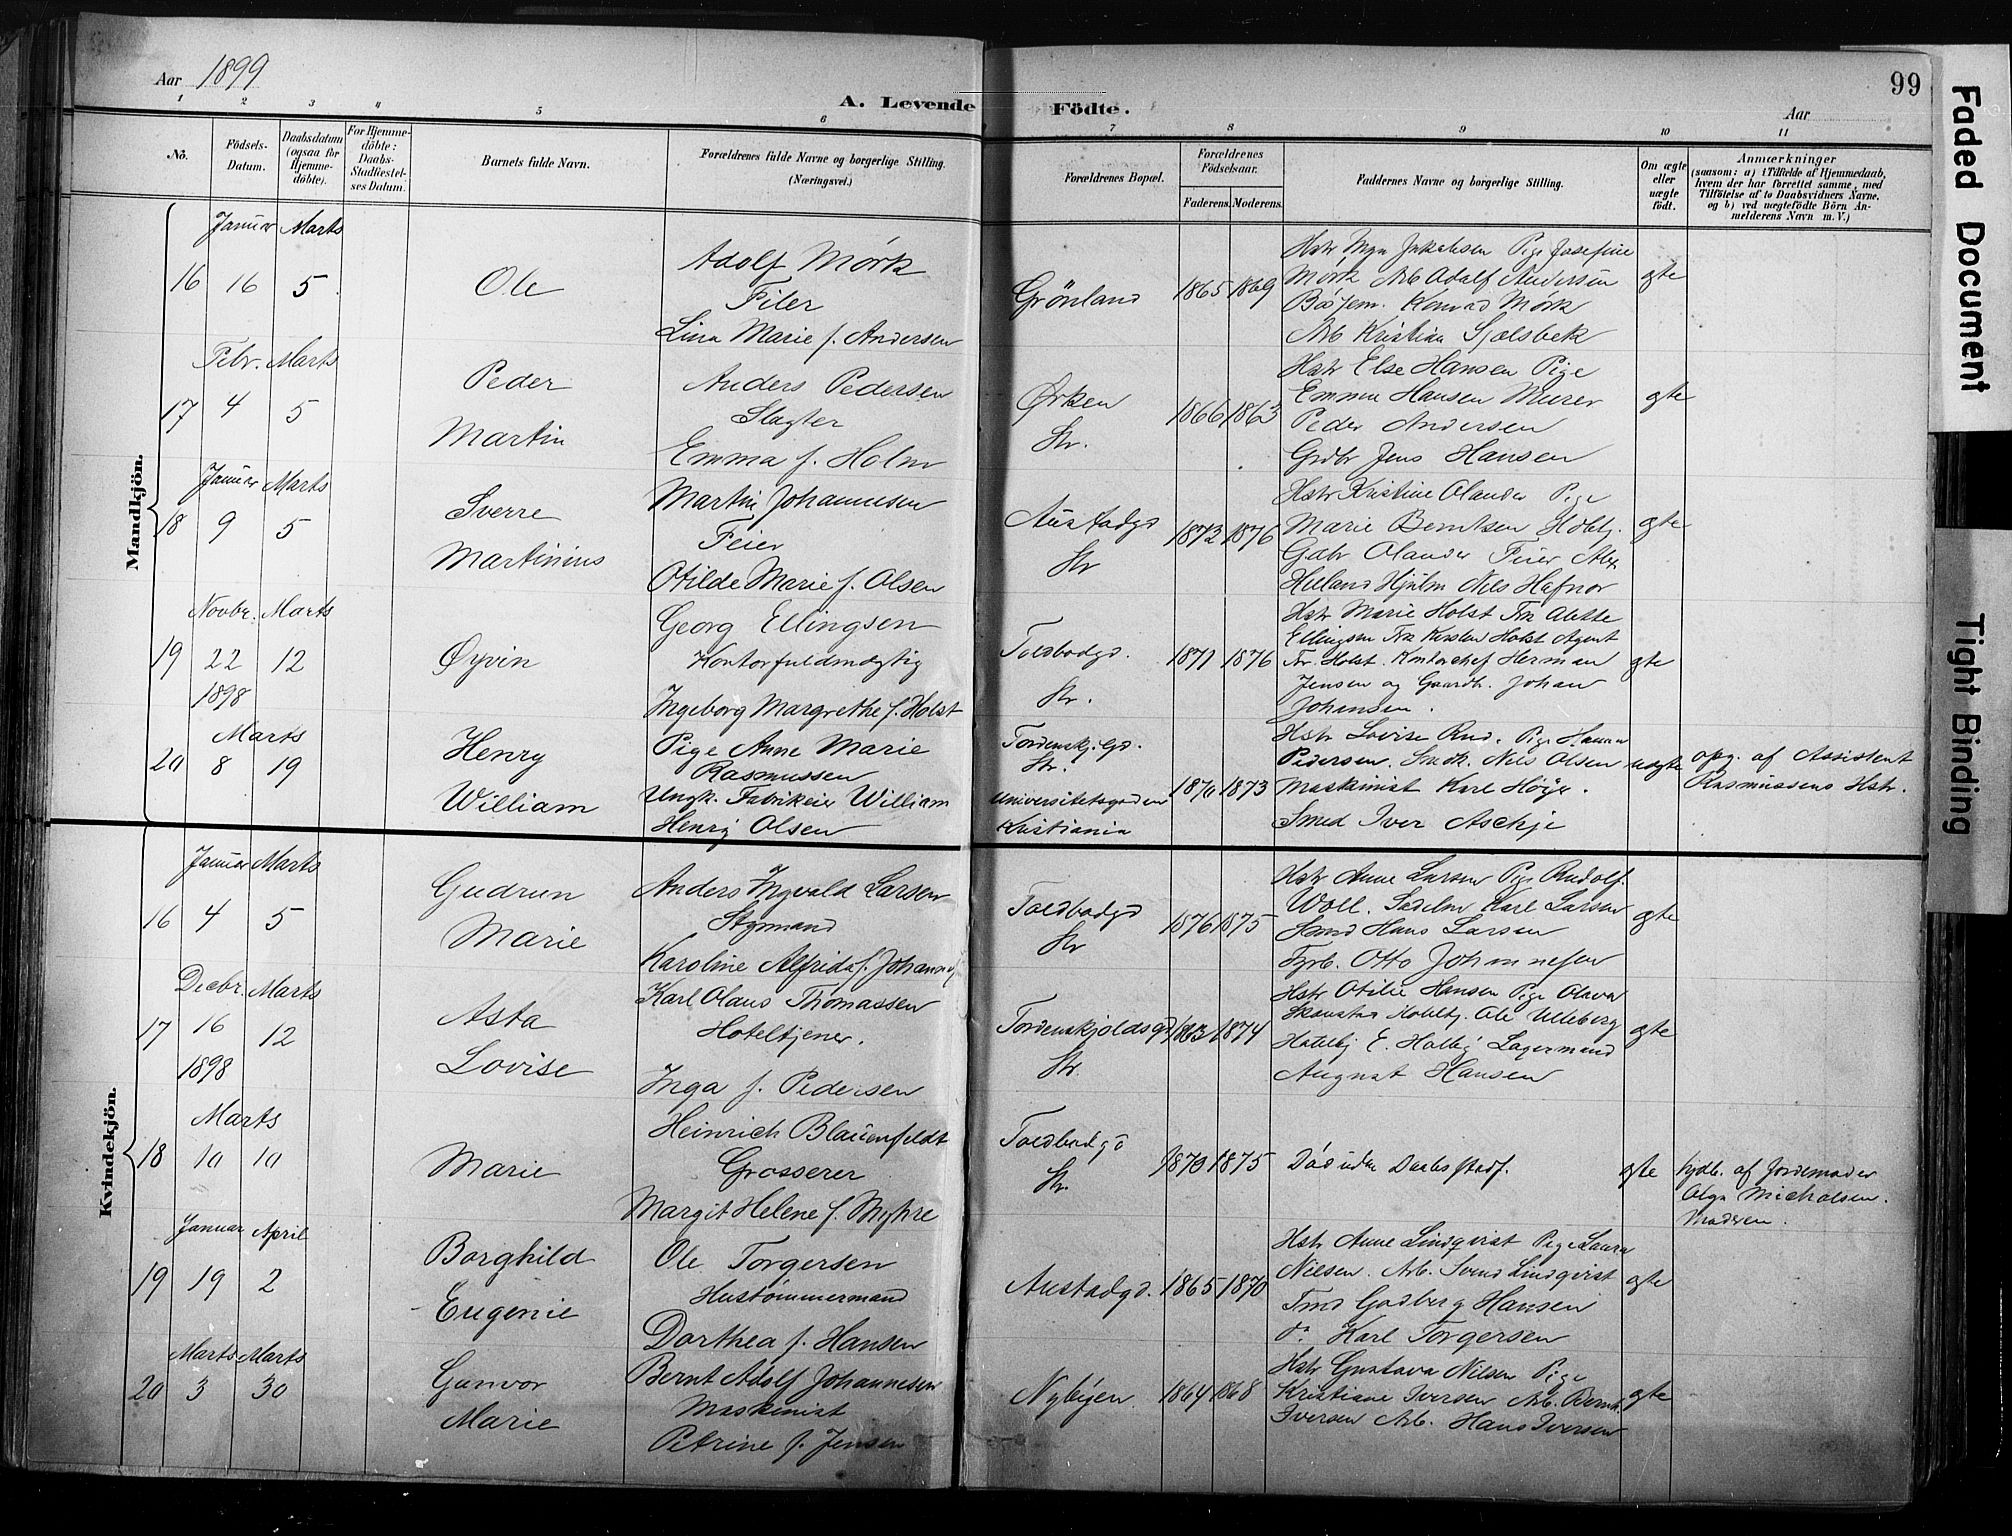 Aar 1899
A. Levende Födte.
99
Aar
Faded Document
Tight Binding
1 2 3 4 5 6 7 8 9 10 11
No.
Födsels-Datum.
Daabsdatum (ogsaa for Hjemmedöbte).
For Hjemmedöbte: Daabs-Stadfæstelses Datum.
Barnets fulde Navn.
Forældrenes fulde Navne og borgerlige Stilling.
(Næringsvei.)
Forældrenes Bopæl.
Forældrenes Födselsaar.
Faderens. Moderens.
Faddernes Navne og borgerlige Stilling.
Om ægte eller uægte födt.
Anmærkninger
(saasom: a) i Tilfælde af Hjemmedaab, hvem der har forrettet samme, med Tilföielse af to Daabsvidners Navne, og b) ved uægtefödte Börn Anmelderens Navn m. V.)
Mandkjön.
Januar Marts
16 16 5 Ole
Adolf Mörk
Filer
Lina Marie f. Andersen
Grönland 1865 1869
Hstr Inga Jakobsen Pige Josefine
Mörk Arb Adolf Andersen
Konrad Mörk
Arb Kristian
ægte
Febr. Marts
17 4 5 Peder
Martin
Anders Pedersen
Slagter
Emma f. Holm
Ørken
Str.
1866 1863
Hstr Else Hansen Pige
Emma Hansen Murer
Peder Andersen
Grdbr Jens Hansen
ægte
Januar Marts
18 9 5 Sverre
Martinius
Martin Johannesen
Feier
Otilde Marie f. Olsen
Austadgd
Str
1872 1876
Hstr Kristine Olander Pige
Marie Berntsen
Olander Feier Alex
Nils Hafnor
ægte
Novbr. Marts
19 22 12
1898
Øyvin
Georg Ellingsen
Kontorfuldmægtig
Ingeborg Margrethe f. Holst
Toldbodgd.
Str.
1871 1876
Hstr Marie Holst Frk Alette
Ellingsen Frk Kirsten Holst Agent
Fr. Holst. Kontorchef Herman
Jensen og Gaardb. Johan
Johansen.
ægte
Marts
20 8 19
Henry
William
Pige Anne Marie
Rasmussen
Ungk. Fabrikeier William
Henry Olsen
Tordenskj. Gd.
Str.
Universitetsgaden
Kristiania
1870 1873
Hstr Lovise Rud. Pige Hanna
Pedersen. Nils Olsen
Maskinist Karl Höye.
Smed Iver Aschje
uægte
opg. af Assistent
Rasmussens Hstr.
Kvindekjön.
Januar Marts
16 4 5
Gudrun
Marie
Anders Ingvald Larsen
Styrmand
Karoline Alfrida f.
Toldbodgd
Str
1876 1875
Hstr Anne Larsen Pige Rudolf.
Woll. Karl Larsen
Smed Hans Larsen
Fyrb. Otto Johannesen
ægte
Decbr. Marts
17 16 12
1898
Asta
Lovise
Karl Olaus Thomassen
Hoteltjener.
Inga f. Pedersen
Tordenskjoldsgd
Str.
1863 1874
Hstr Otilie Hansen Pige
Ole Ulleberg
Lagermand
August Hansen
ægte
Marts
18 10 10
Marie
Heinrich Blauenfeldt
Grosserer
Margit Helene f. Myhre
Toldbodgd
Str.
1870 1875
Död uden Daabsstadf.
ægte
hjdb. af Jordemoder
Olga Micholsen.
Moderen.
Januar April
19 19 2
Borghild
Eugenie
Ole Torgersen
Hustömmermand
Dorthea f. Hansen
Austadgd. 1865 1870
Hstr Anne Lindqvist Pige Laura
Nielsen. Arb. Svend Lindqvist
Tmd Godberg Hansen
do Karl Torgersen
ægte
Marts Marts
20 3 30
Gunvor
Marie
Bernt Adolf Johannesen
Maskinist
Petrine f. Jensen
Nybyen 1864 1868
Hstr Gustava Nilsen Pige
Kristiane Iversen Arb. Bernh.
Iversen Arb. Hans Iversen
ægte